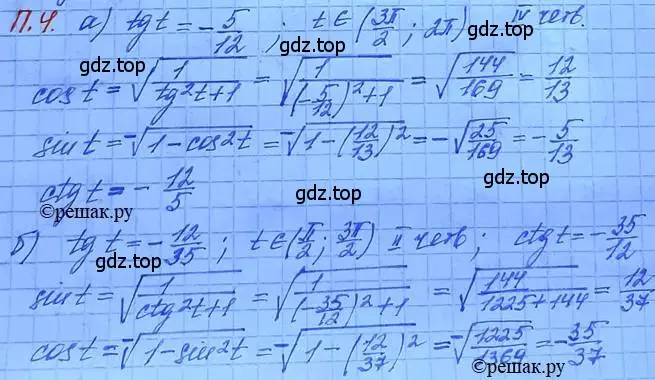 П.4. а) tg t = -5/12 ; t ∈ (3π/2 ; 2π) IV четв.
gdz.top gdz.top
cos t = √(1/(tg²t+1)) = √(1/((-5/12)²+1)) = √(144/169) = 12/13
gdz.top
sin t = -√(1-cos²t) = -√(1-(12/13)²) = -√(25/169) = -5/13
ctg t = -12/5 gdz.top gdz.top
©решак.ру
б) tg t = -12/35 ; t ∈ (π/2 ; 3π/2) II четв ; ctg t = -35/12
sin t = √(1/(ctg²t+1)) = √(1/((-35/12)²+1)) = √(144/(1225+144)) = 12/37
cos t = -√(1-sin²t) = -√(1-(12/37)²) = -√(1225/1369) = -35/37
gdz.top ©решак.ру